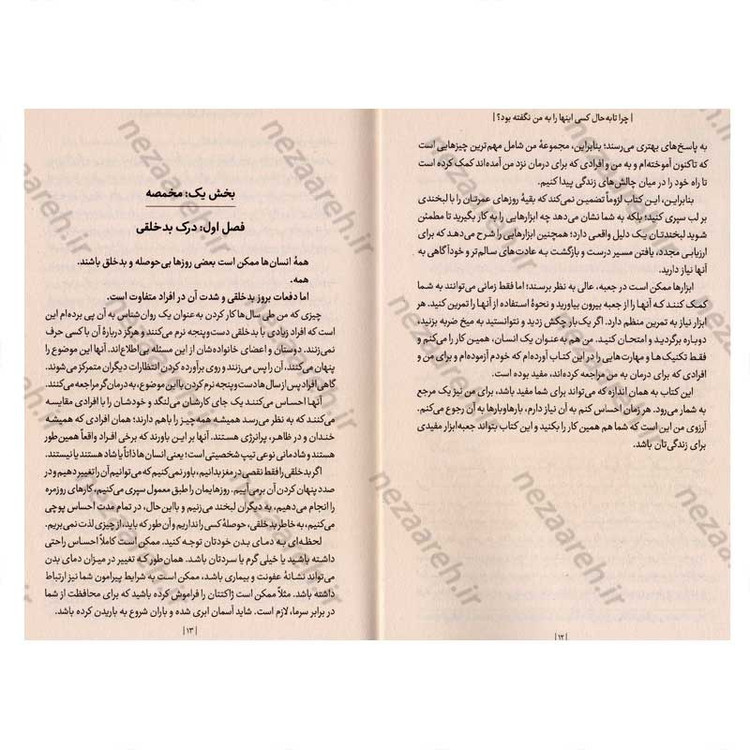 | چرا تابه‌حال کسی اینها را به من نگفته بود؟ |
به پاسخ‌های بهتری می‌رسند؛ بنابراین، مجموعهٔ من شامل مهم‌ترین چیزهایی است
که تاکنون آموخته‌ام و به من و افرادی که برای درمان نزد من آمده‌اند کمک کرده است
تا راه خود را در میان چالش‌های زندگی پیدا کنیم.
بنابراین، این کتاب لزوماً تضمین نمی‌کند که بقیهٔ روزهای عمرتان را با لبخندی
بر لب سپری کنید؛ بلکه به شما نشان می‌دهد چه ابزارهایی را به کار بگیرید تا مطمئن
شوید لبخندتان یک دلیل واقعی دارد؛ همچنین ابزارهایی را شرح می‌دهد که برای
ارزیابی مجدد، یافتن مسیر درست و بازگشت به عادت‌های سالم‌تر و خودآگاهی به
آنها نیاز دارید.
ابزارها ممکن است در جعبه، عالی به نظر برسند؛ اما فقط زمانی می‌توانند به شما
کمک کنند که آنها را از جعبه بیرون بیاورید و نحوهٔ استفاده از آنها را تمرین کنید. هر
ابزار نیاز به تمرین منظم دارد. اگر یک‌بار چکش زدید و نتوانستید به میخ ضربه بزنید،
دوباره برگردید و امتحان کنید. من هم به‌عنوان یک انسان، همین کار را می‌کنم و
فقط تکنیک‌ها و مهارت‌هایی را در این کتاب آورده‌ام که خودم آزموده‌ام و برای من و
افرادی که برای درمان به من مراجعه کرده‌اند، مفید بوده است.
این کتاب به همان اندازه که می‌تواند برای شما مفید باشد، برای من نیز یک مرجع
به شمار می‌رود. هر زمان احساس کنم به آن نیاز دارم، بارهاوبارها به آن رجوع می‌کنم.
آرزوی من این است که شما هم همین کار را بکنید و این کتاب بتواند جعبه‌ابزار مفیدی
برای زندگی‌تان باشد.
| ۱۲ |
بخش یک: مخمصه
فصل اول: درک بدخلقی
همهٔ انسان‌ها ممکن است بعضی روزها بی‌حوصله و بدخلق باشند.
همه.
اما دفعات بروز بدخلقی و شدت آن در افراد متفاوت است.
چیزی که من طی سال‌ها کار کردن به‌عنوان یک روان‌شناس به آن پی برده‌ام این
است که افراد زیادی با بدخلقی دست‌وپنجه نرم می‌کنند و هرگز دربارهٔ آن با کسی حرف
نمی‌زنند. دوستان و اعضای خانواده‌شان از این مسئله بی‌اطلاع‌اند. آنها این موضوع را
پنهان می‌کنند، آن را پس می‌زنند و روی برآورده کردن انتظارات دیگران متمرکز می‌شوند.
گاهی افراد پس از سال‌ها دست‌وپنجه نرم کردن با این موضوع، به درمانگر مراجعه می‌کنند.
آنها احساس می‌کنند یک جای کارشان می‌لنگد و خودشان را با افرادی مقایسه
می‌کنند که به نظر می‌رسد همیشه همه‌چیز را باهم دارند؛ همان افرادی که همیشه
خندان و در ظاهر، پرانرژی هستند. آنها بر این باورند که برخی افراد واقعاً همین‌طور
هستند و شادمانی نوعی تیپ شخصیتی است؛ یعنی انسان‌ها ذاتاً یا شاد هستند یا نیستند.
اگر بدخلقی را فقط نقصی در مغز بدانیم، باور نمی‌کنیم که می‌توانیم آن را تغییر دهیم و در
صدد پنهان کردن آن برمی‌آییم. روزهایمان را طبق معمول سپری می‌کنیم، کارهای روزمره
را انجام می‌دهیم، به دیگران لبخند می‌زنیم و بااین‌حال، در تمام مدت احساس پوچی
می‌کنیم، به‌خاطر بدخلقی، حوصلهٔ کسی را نداریم و آن طور که باید، از چیزی لذت نمی‌بریم.
لحظه‌ای به دمای بدن خودتان توجه کنید. ممکن است کاملاً احساس راحتی
داشته باشید یا خیلی گرم یا سردتان باشد. همان‌طور که تغییر در میزان دمای بدن
می‌تواند نشانهٔ عفونت و بیماری باشد، ممکن است به شرایط پیرامون شما نیز ارتباط
داشته باشد. مثلاً ممکن است ژاکتتان را فراموش کرده باشید که برای محافظت از شما
در برابر سرما، لازم است. شاید آسمان ابری شده و باران شروع به باریدن کرده باشد.
| ۱۳ |
nezaareh.ir